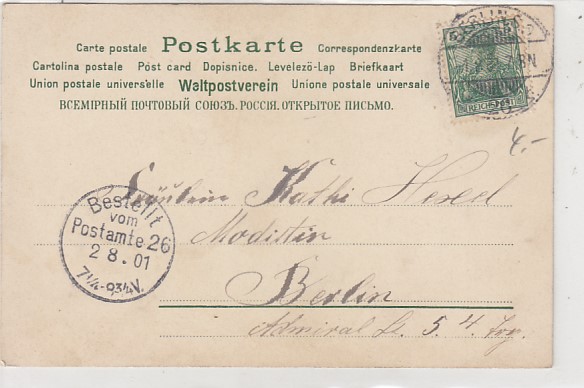 Carte postale Postkarte Correspondenzkarte
Cartolina postale Post card Dopisnice. Levelező-Lap Briefkaart
Union postale universelle Weltpostverein Unione postale universale
ВСЕМІРНЫЙ ПОЧТОВЫЙ СОЮЗЪ. РОССІЯ. ОТКРЫТОЕ ПИСЬМО.
BERLIN
REICHSPOST
4.-
Fräulein Käthi Hesed
Modistin
Berlin
Admiral St. 5 4 Trg.
Bestellt
vom
Postamte 26
2 8. 01
7¼-9¾V.